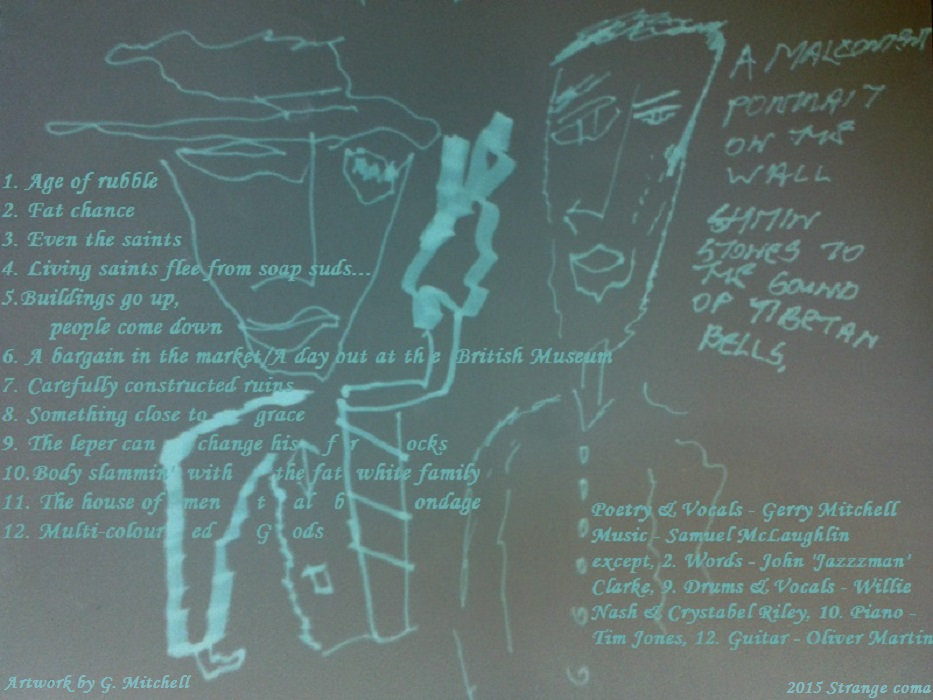 1. Age of rubble
2. Fat chance
3. Even the saints
4. Living saints flee from soap suds...
5.Buildings go up,
people come down
6. A bargain in the market/A day out at the British Museum
7. Carefully constructed ruins
8. Something close to grace
9. The leper can change his f r ocks
10.Body slammin' with the fat white family
11. The house of men t al b ondage
12. Multi-colour ed G ods
A MALCONTENT
PORTRAIT
ON THE
WALL
SHITIN
STONES TO
THE SOUND
OF TIBETAN
BELLS,
Poetry & Vocals - Gerry Mitchell
Music - Samuel McLaughlin
except, 2. Words - John 'Jazzzman'
Clarke, 9. Drums & Vocals - Willie
Nash & Crystabel Riley, 10. Piano -
Tim Jones, 12. Guitar - Oliver Martin
Artwork by G. Mitchell
2015 Strange coma